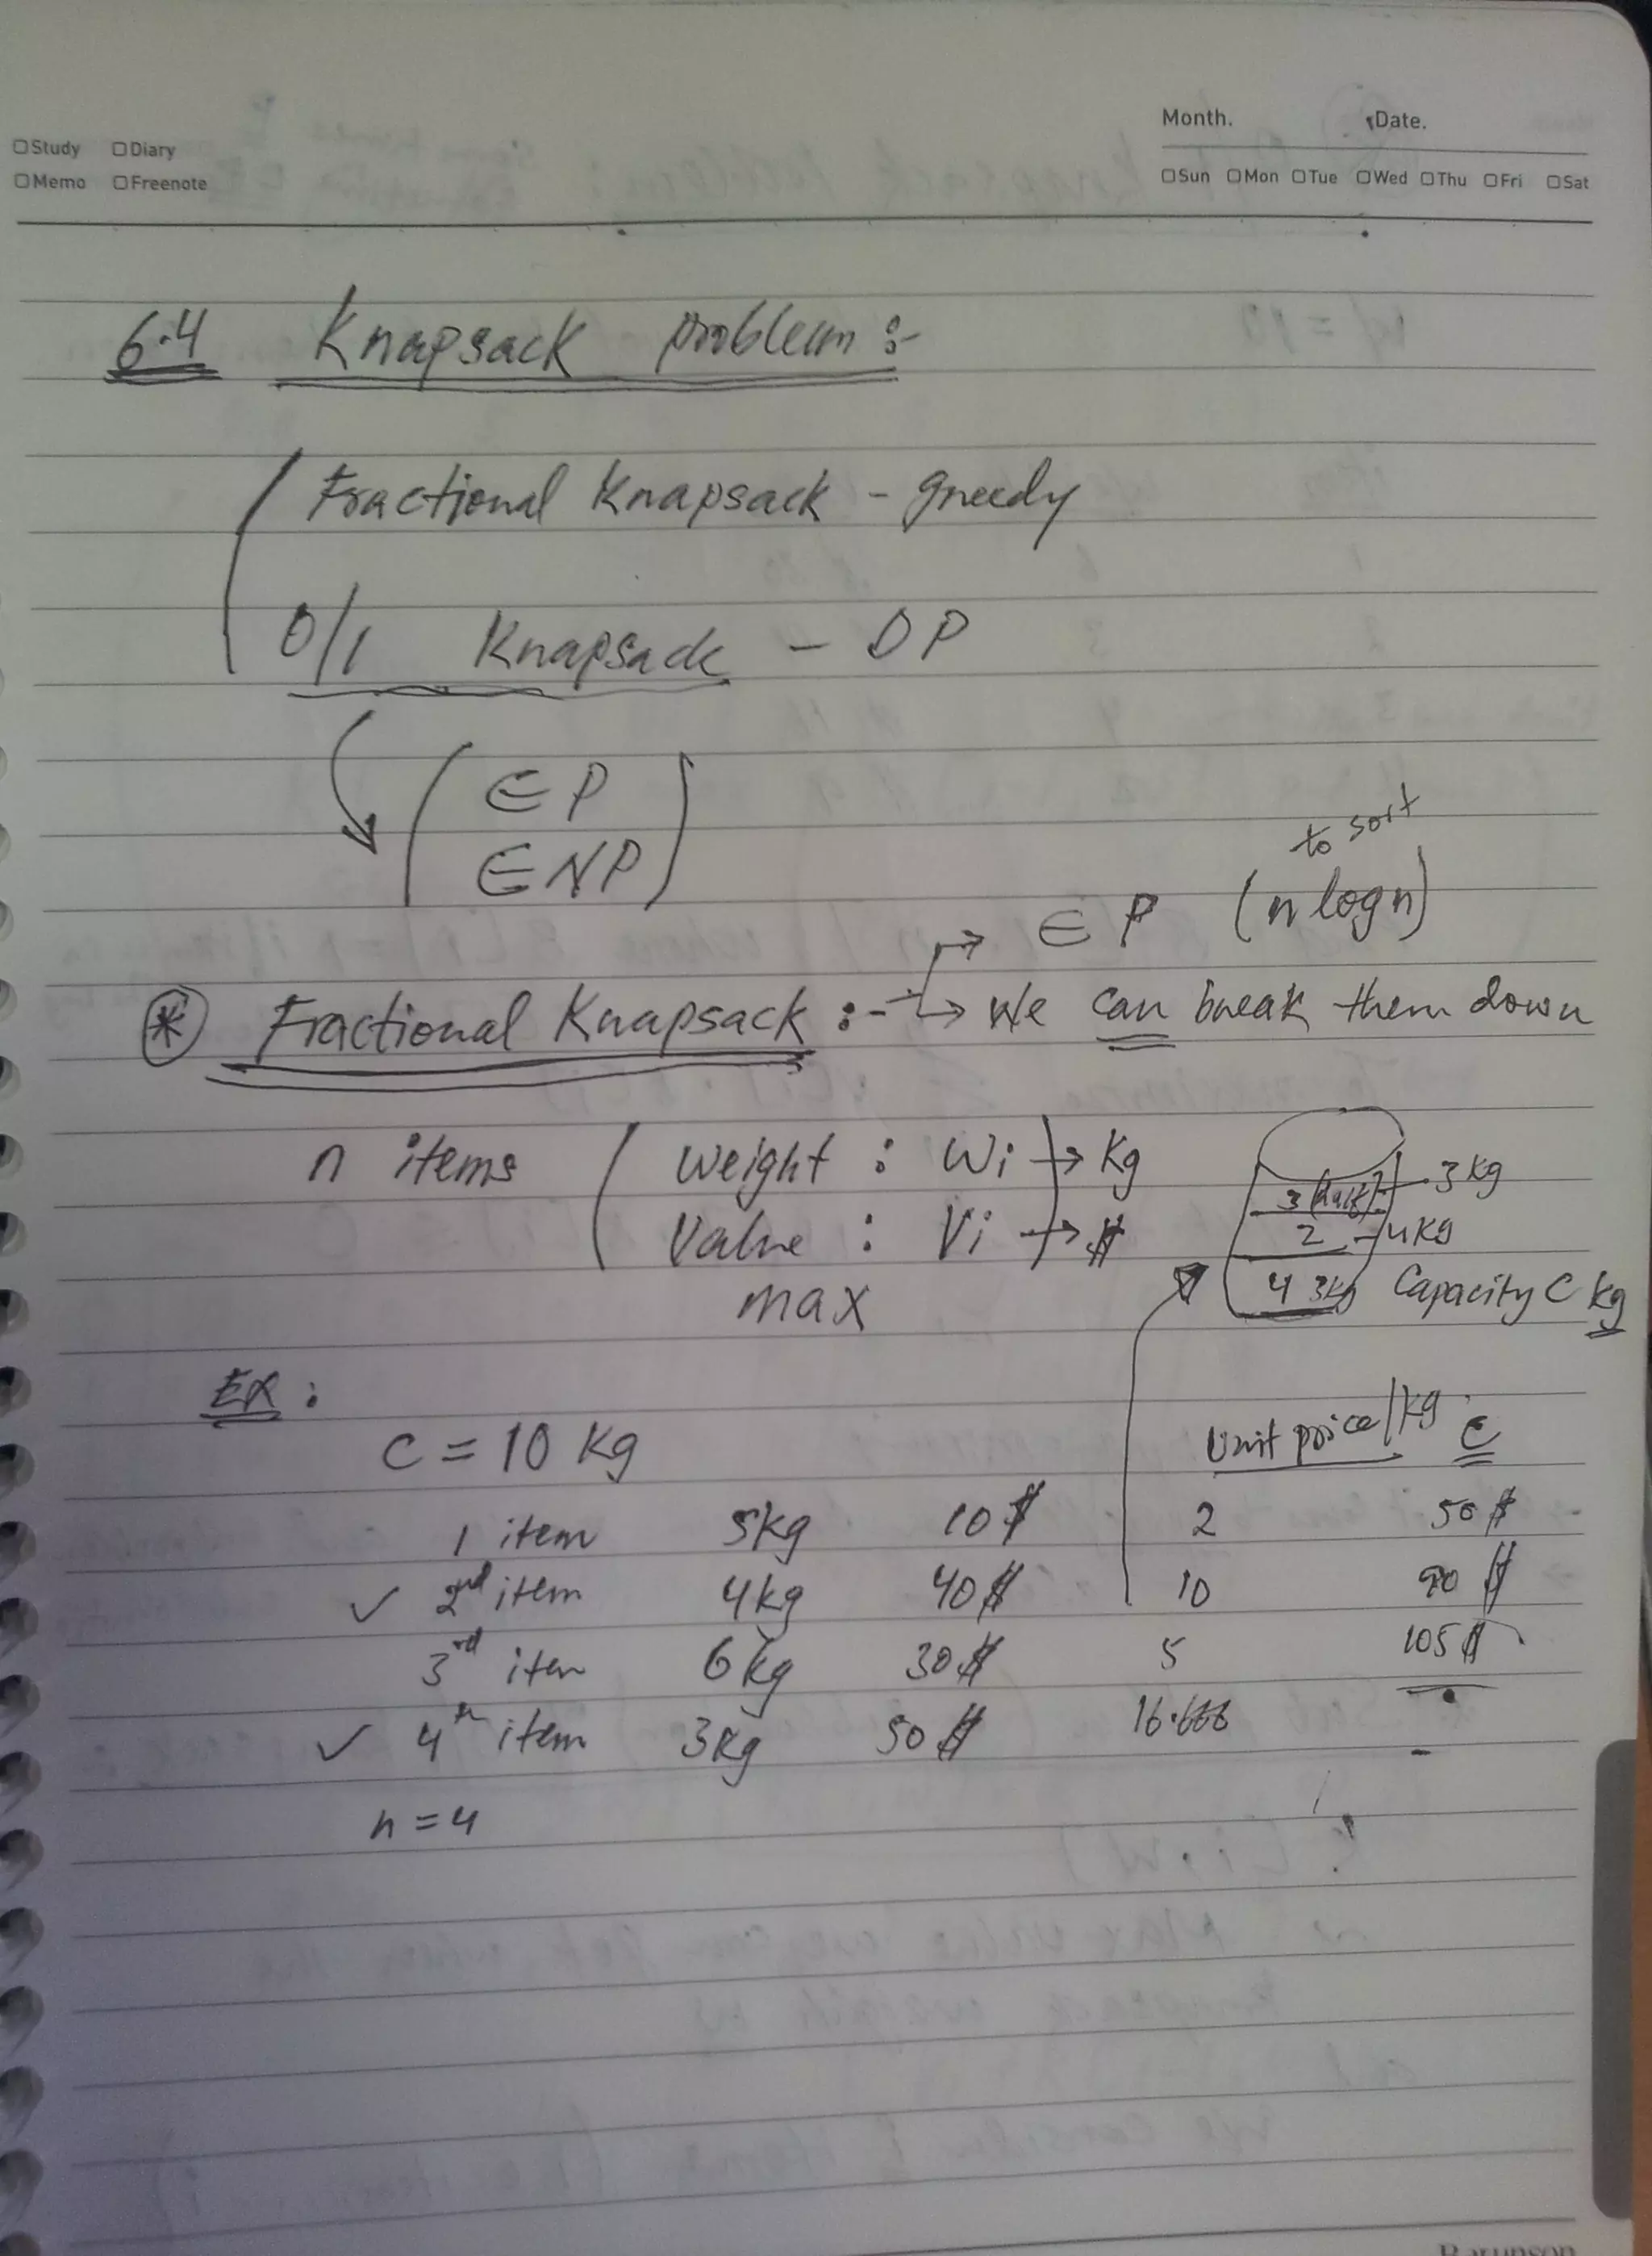 Month. Date.
□Study □Diary
□Memo □Freenote
□Sun □Mon □Tue □Wed □Thu □Fri □Sat
6.4 Knapsack problem :-
Fractional Knapsack - greedy
0/1 Knapsack - DP
∈ P
∈ NP
to sort
∈ P (n log n)
* Fractional Knapsack :- → We can break them down
n items ( weight : Wi → Kg
Value : Vi → $
max
3 (half) 3 kg
2 - 4 kg
4 3kg Capacity C kg
EX :
C = 10 Kg
Unit price/kg C
1 item 5kg 10$ 2 50 $
✓ 2nd item 4kg 40$ 10 90 $
3rd item 6kg 30$ 5 105 $
✓ 4th item 3kg 50$ 16.666
n = 4